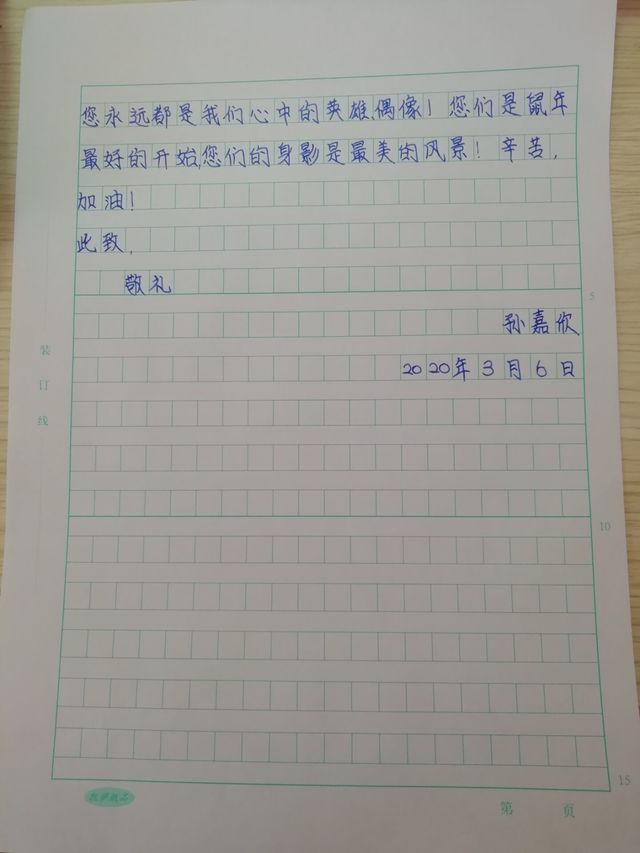 您永远都是我们心中的英雄,偶像！您们是鼠年
最好的开始,您们的身影是最美的风景！辛苦,
加油！
此致,
敬礼
5
孙嘉欣
2020年3月6日
装
订
线
10
15
第 页